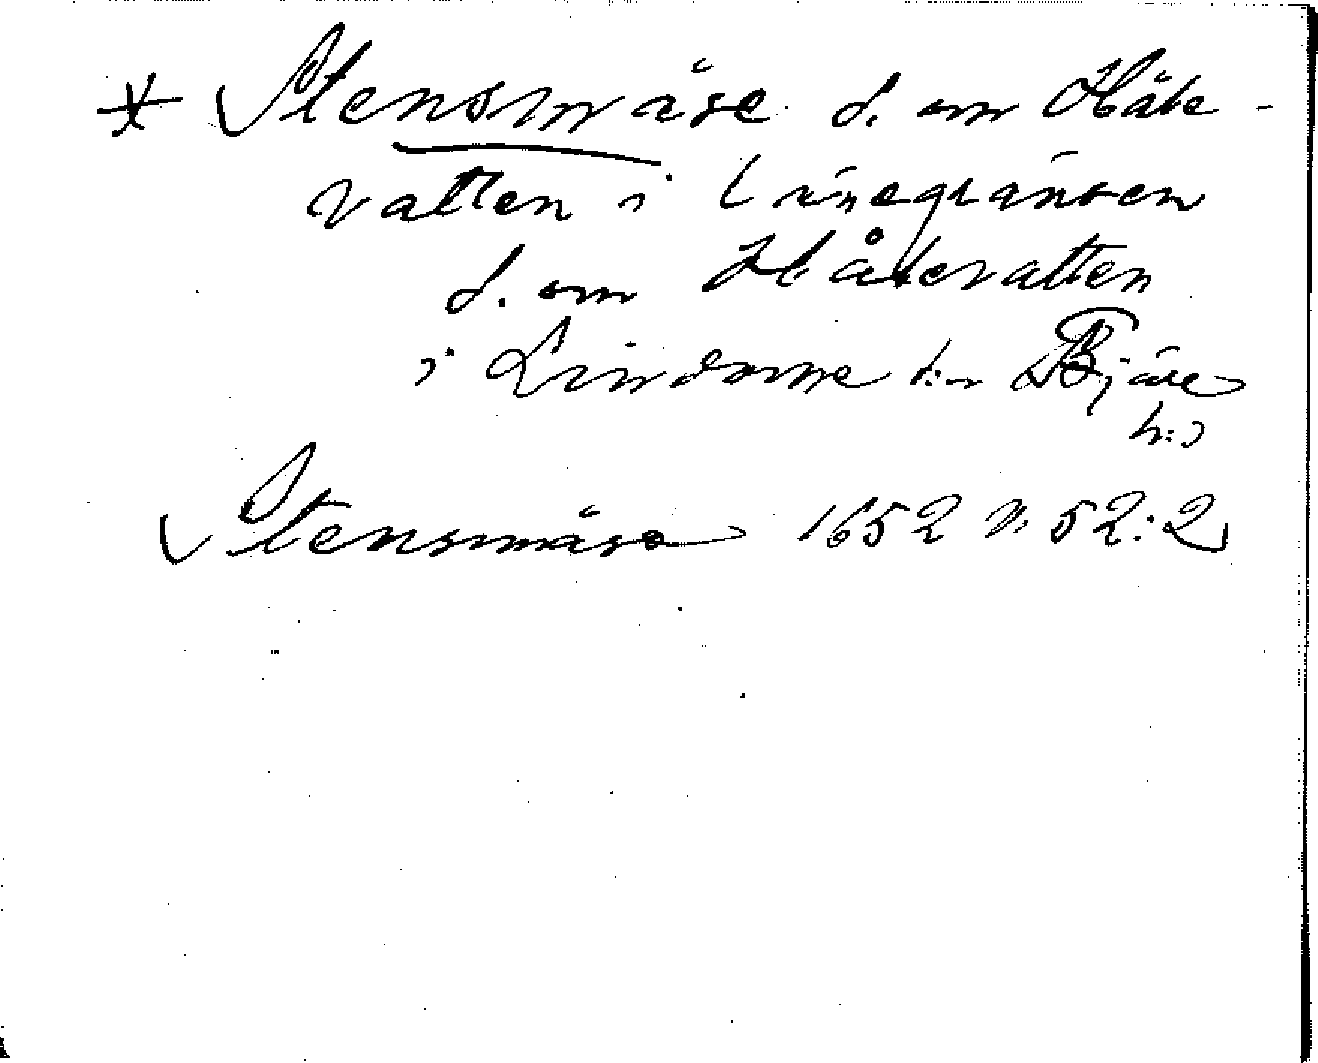 * Stensmåse S. om Håke-
vatten i Länegränsen
S. om Håkevatten
i Lindome sn Fjäre
h:d
Stensmåsa 1652 n. 52:2